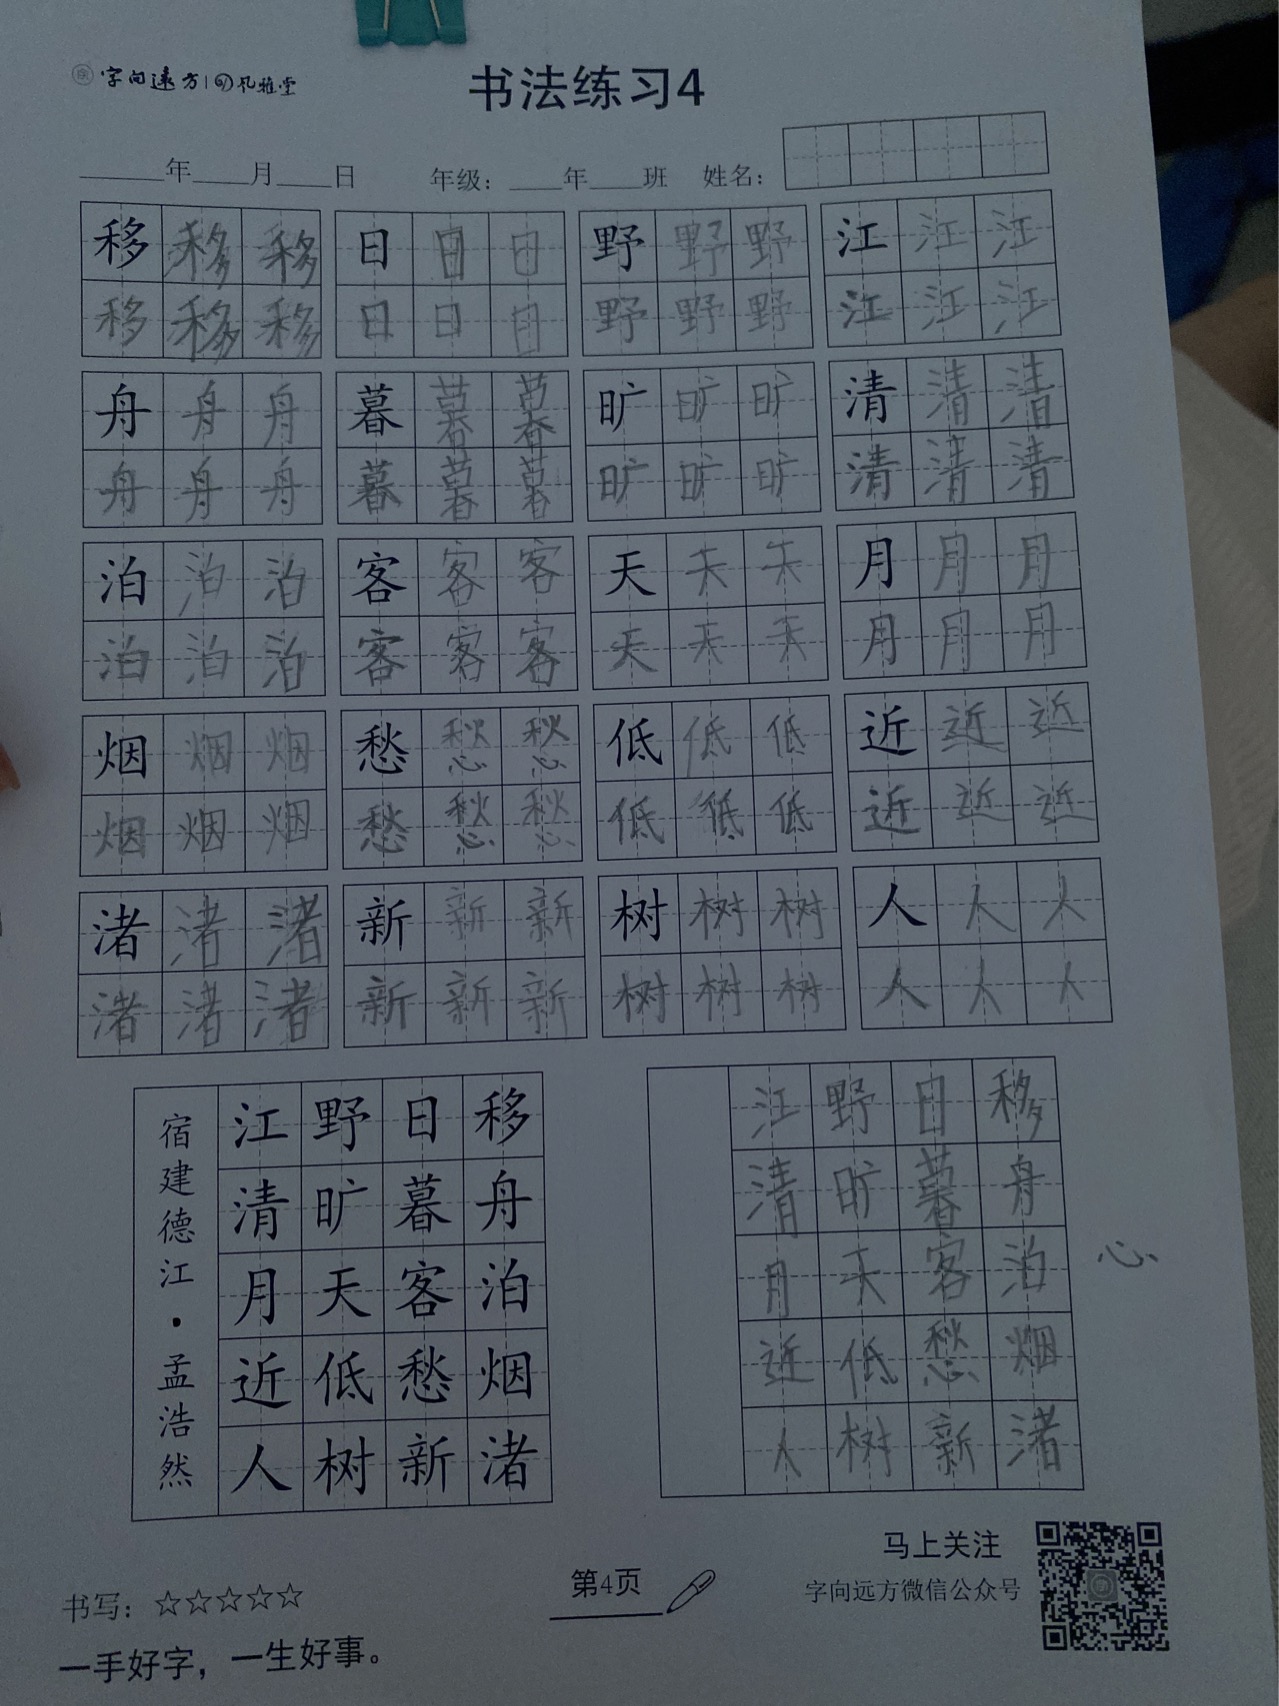 字向远方 | 孔雅堂
书法练习4
年 月 日 年级： 年 班 姓名：
移 移 移 日 日 日 野 野 野 江 江 江
移 移 移 日 日 日 野 野 野 江 江 江
舟 舟 舟 暮 暮 暮 旷 旷 旷 清 清 清
舟 舟 舟 暮 暮 暮 旷 旷 旷 清 清 清
泊 泊 泊 客 客 客 天 天 天 月 月 月
泊 泊 泊 客 客 客 天 天 天 月 月 月
烟 烟 烟 愁 愁 愁 低 低 低 近 近 近
烟 烟 烟 愁 愁 愁 低 低 低 近 近 近
渚 渚 渚 新 新 新 树 树 树 人 人 人
渚 渚 渚 新 新 新 树 树 树 人 人 人
移舟泊烟渚
日暮客愁新
野旷天低树
江清月近人
宿建德江·孟浩然
移舟泊烟渚
日暮客愁新
野旷天低树
江清月近人
心
马上关注
字向远方微信公众号
第4页
书写：☆☆☆☆☆
一手好字，一生好事。